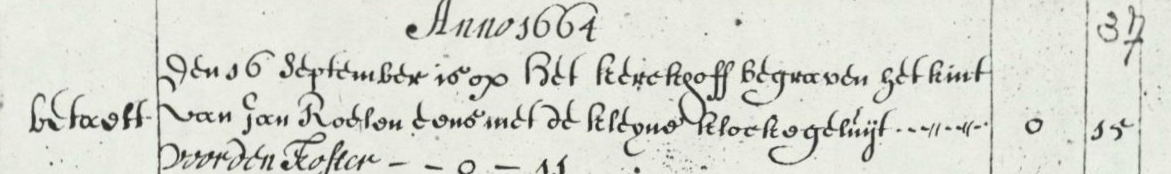 Anno 1664
37
Den 16 September is op het kerckhoff begraven het kint
betaelt van Jan Roelen eens met de kleyne klocke geluijt 0 15
voor den Koster - - 0 - 11